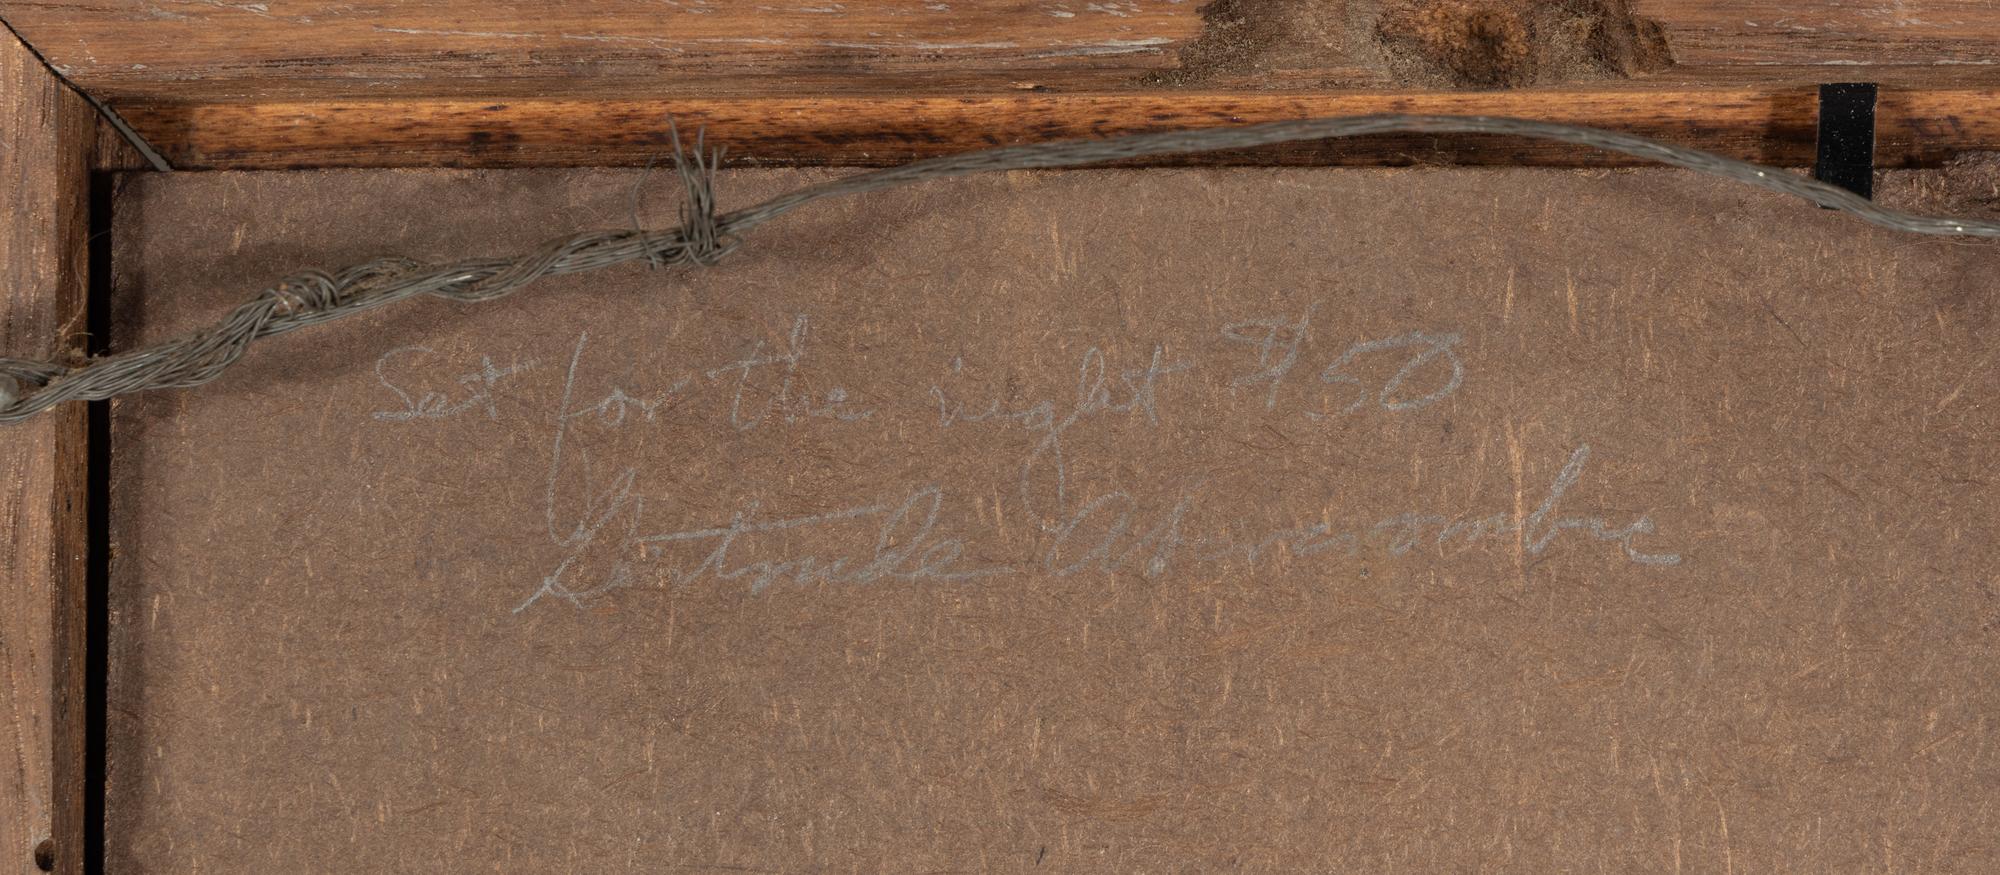 Set for the night $50
Gertrude Abercrombie